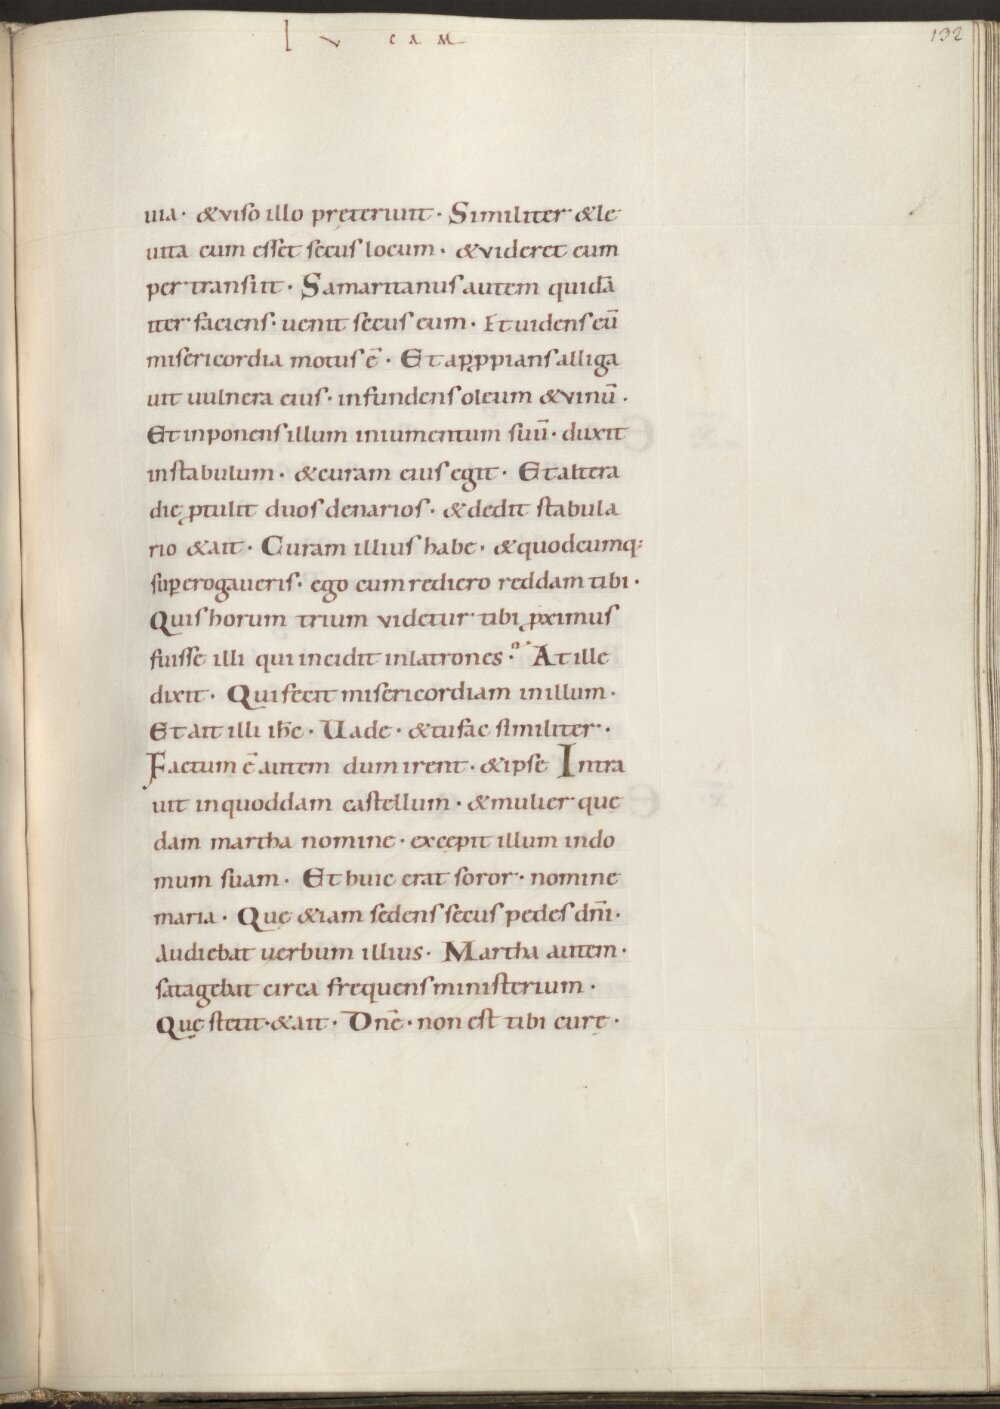 LVCAM
132
uia· & viso illo pręteriuit· Similiter & le
uita cum esset secus locum· & videret eum
pertransiit· Samaritanus autem quidā
iter faciens· uenit secus eum· Et uidens eū
misericordia motus ē· Et apꝓpians alliga
uit uulnera eius· infundens oleum & vinū·
Et inponens illum iniumentum suū· duxit
instabulum· & curam eius egit· Et altera
die ꝓtulit duos denarios· & dedit stabula
rio & ait· Curam illius habe· & quodcumq;
suꝑerogaueris· ego cum rediero reddam tibi·
Quis horum trium videtur tibi ꝓximus
fuisse illi qui incidit inlatrones· At ille
dixit· Qui fecit misericordiam inillum·
Et ait illi ihc̄· Uade· & tu fac similiter·
Factum ē autem dum irent· & ipse Intra
uit inquoddam castellum· & mulier quę
dam martha nomine· excępit illum indo
mum suam· Et huic erat soror· nomine
maria· Quę &iam sedens secus pedes dn̄i·
Audiebat uerbum illius· Martha autem·
satagebat circa frequens ministerium·
Quę stetit· & ait· Dn̄e· non est tibi curę·